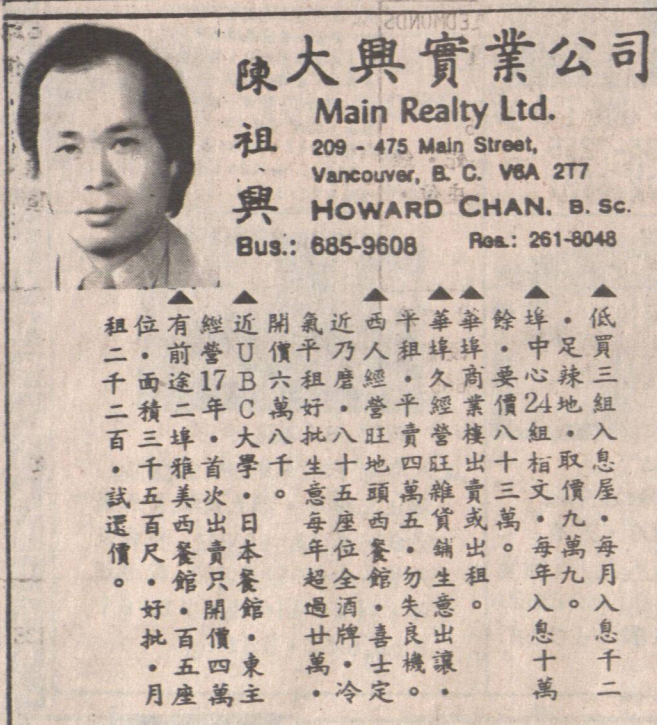 大興實業公司
陳祖興
Main Realty Ltd.
209 - 475 Main Street,
Vancouver, B. C. V6A 2T7
HOWARD CHAN. B. Sc.
Bus.: 685-9608 Res.: 261-8048
▲低買三組入息屋・每月入息千二
・足辣地・取價九萬九。
▲埠中心24組栢文・每年入息十萬
餘・要價八十三萬。
▲華埠商業樓出賣或出租。
▲華埠久經營旺雜貨鋪生意出讓・
平租・平賣四萬五・勿失良機。
▲西人經營旺地頭西餐館・喜士定
近乃磨・八十五座位全酒牌・冷
氣平租好批生意每年超過廿萬・
開價六萬八千。
▲近UBC大學・日本餐館・東主
經營17年・首次出賣只開價四萬
▲有前途二埠雅美西餐館・百五座
位・面積三千五百尺・好批・月
租二千二百・試還價。